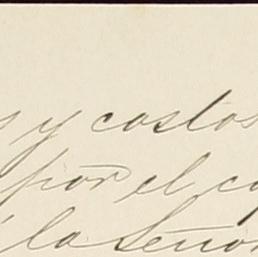 s y costos
por el co
la Señor